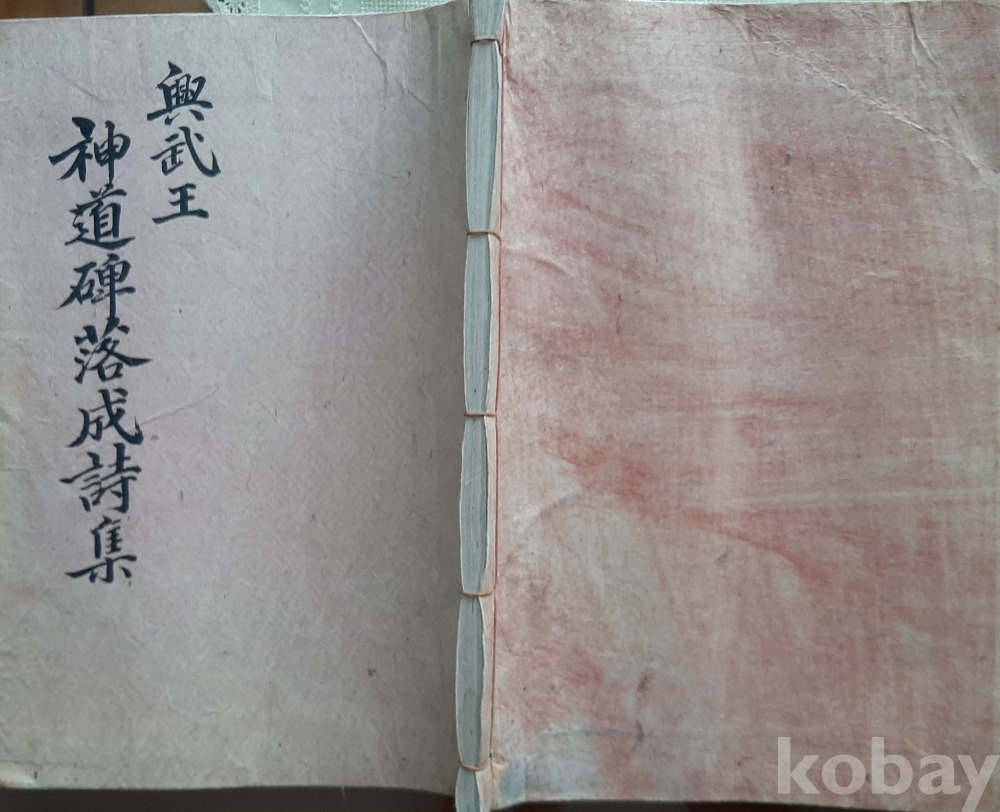 興武王
神道碑落成詩集
kobay